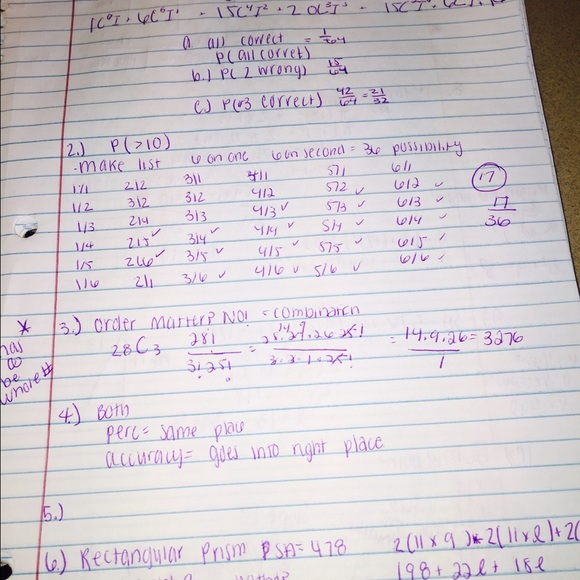 1C⁶I⁰ + 6C⁵I¹ + 15C⁴I² + 20C³I³
a. all correct = 1/64
P(all corret)
b.) P(2 wrong) 15/64
c.) P(≥3 correct) 42/64 = 21/32
2.) P(>10)
-make list 6 on one 6 on second = 36 possibility
1/1 2/2 3/1 4/1 5/1 6/1
1/2 3/2 3/2 4/2 5/2 ✓ 6/2 ✓ 17
1/3 2/4 3/3 4/3 ✓ 5/3 ✓ 6/3 ✓ 17/36
1/4 2/5 ✓ 3/4 ✓ 4/4 ✓ 5/4 ✓ 6/4 ✓
1/5 2/6 ✓ 3/5 ✓ 4/5 ✓ 5/5 ✓ 6/5 ✓
1/6 2/1 3/6 ✓ 4/6 ✓ 5/6 ✓ 6/6 ✓
* has to be whole #
3.) Order Matter? NO! = combination
28C3 28!/3!25! = 28·27·26·25!/3·2·1·25! = 14·9·26/1 = 3276
4.) Both
perc = same place
accuracy = goes into right place
5.)
6.) Rectangular Prism SA = 478 2(11x9)+2(11xl)+2(
198 + 22l + 18l